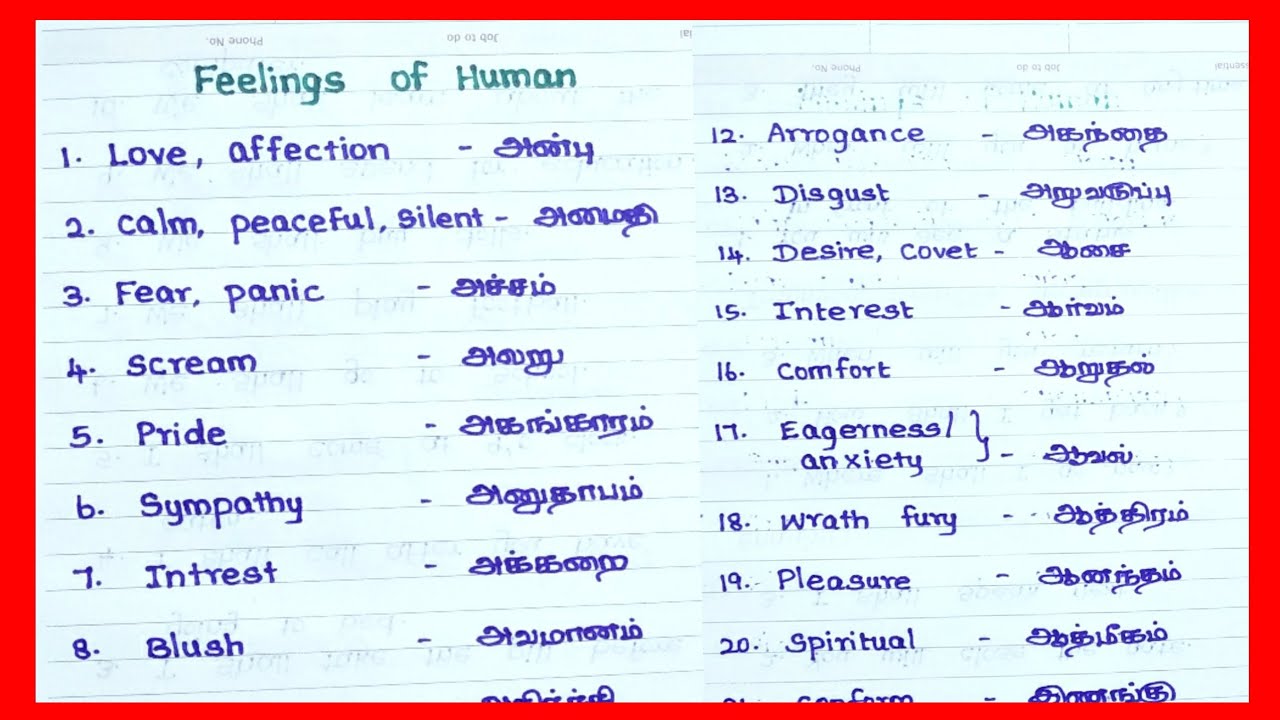 Phone No.
Job to do
Feelings of Human
1. Love, affection - அன்பு
2. Calm, peaceful, silent - அமைதி
3. Fear, panic - அச்சம்
4. Scream - அலறு
5. Pride - அகங்காரம்
6. Sympathy - அனுதாபம்
7. Intrest - அக்கறை
8. Blush - அவமானம்
Phone No.
Job to do
12. Arrogance - அகந்தை
13. Disgust - அறுவருப்பு
14. Desire, Covet - ஆசை
15. Interest - ஆர்வம்
16. Comfort - ஆறுதல்
17. Eagerness/
anxiety - ஆவல்
18. Wrath fury - ஆத்திரம்
19. Pleasure - ஆனந்தம்
20. Spiritual - ஆத்மீகம்
21. Conform - இணங்கு